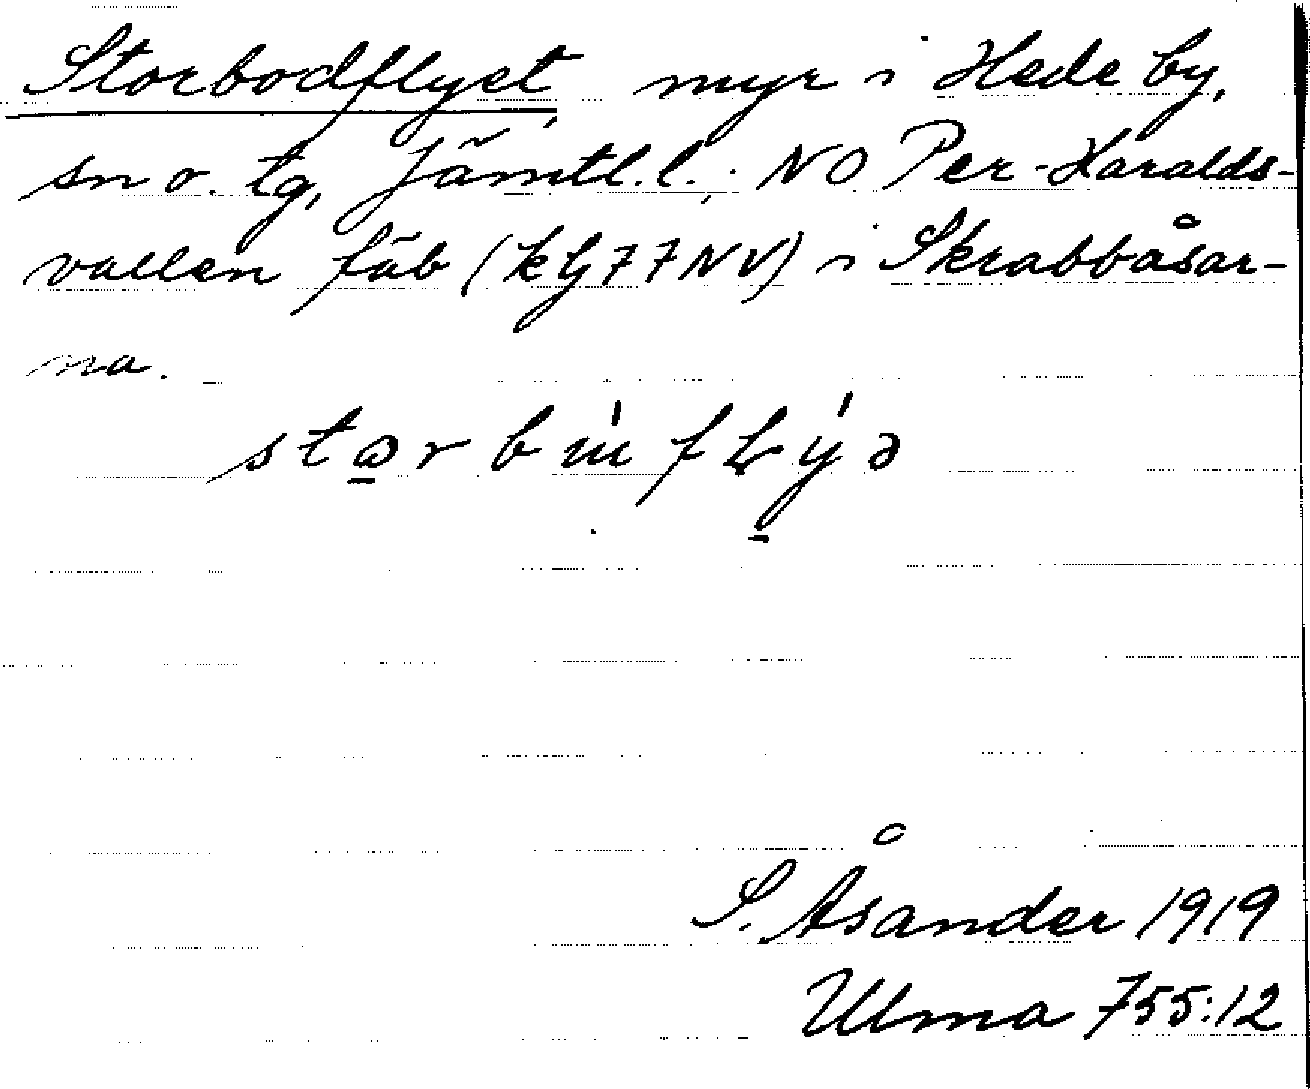 Storbodflyet, myr i Hede by,
sn o. tg, Jämtl. l.; NO Per-Haralds-
vallen fäb (kbj 77 NV) i Skrabbåsar-
na.
S. Åsander 1919
Ulma 755:12